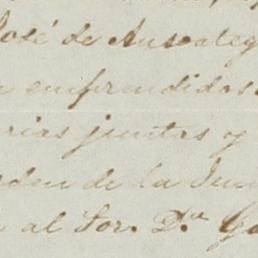 José de Ansoateg
emprendidos
rias juntas y
orden de la Jun
al Sor. D.n Ga